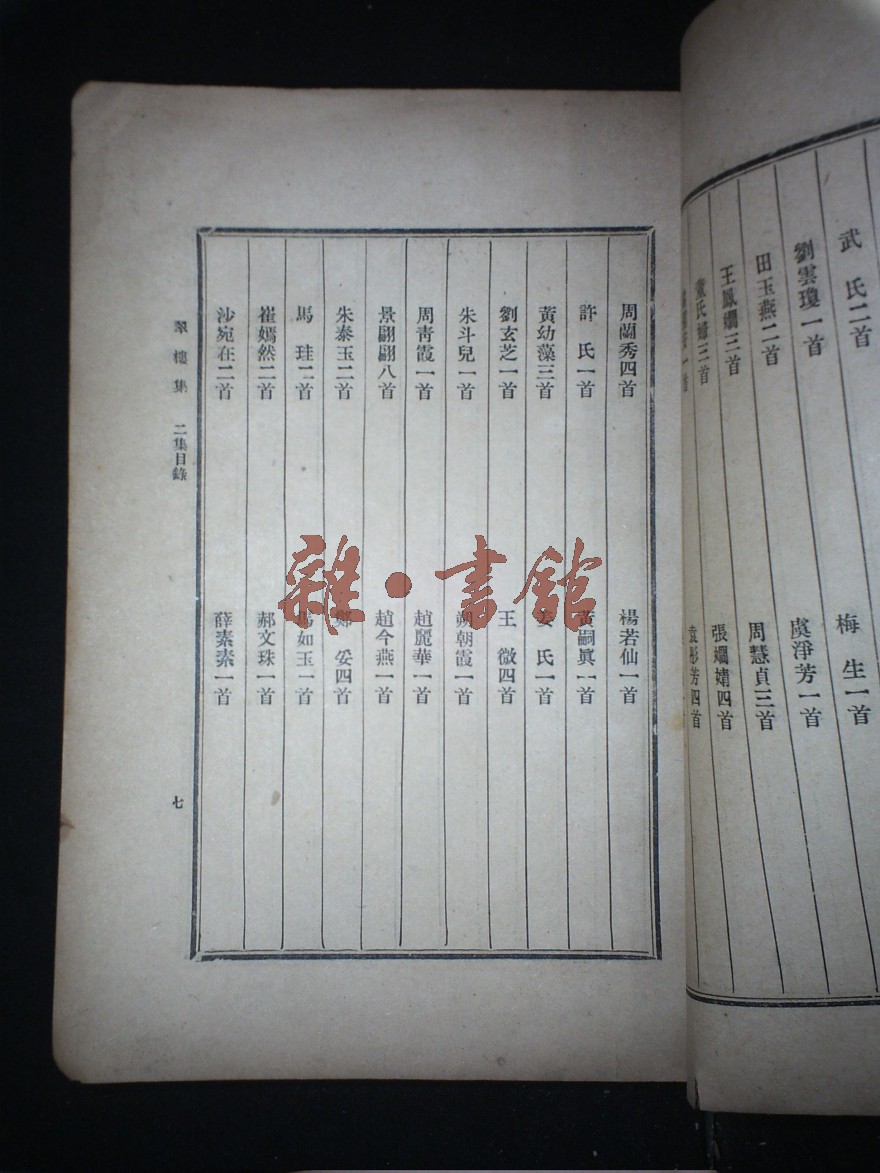 武　氏二首
梅　生一首
劉雲瓊一首
虞淨芳一首
田玉燕二首
周慧貞三首
王鳳嫻三首
張嫻婧四首
袁彤芳四首
周蘭秀四首
楊若仙一首
許　氏一首
黃嗣眞一首
黃幼藻三首
姜　氏一首
劉玄芝一首
王　微四首
朱斗兒一首
朝霞一首
周青霞一首
趙麗華一首
景翩翩八首
趙今燕一首
朱泰玉二首
鄭　妥四首
馬　珪二首
馬如玉二首
崔嫣然二首
郝文珠一首
沙宛在二首
薛素素一首
翠樓集　二集目錄
七
雜·書館